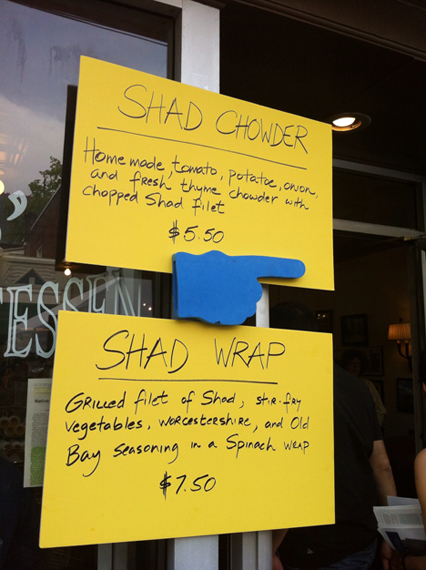 SHAD CHOWDER
Homemade, tomato, potatoe, onion,
and fresh thyme chowder with
chopped Shad filet
$5.50
ESSEN
SHAD WRAP
GRilled filet of Shad, stir-fry
vegetables, worcestershire, and Old
Bay seasoning in a Spinach wrap
$7.50